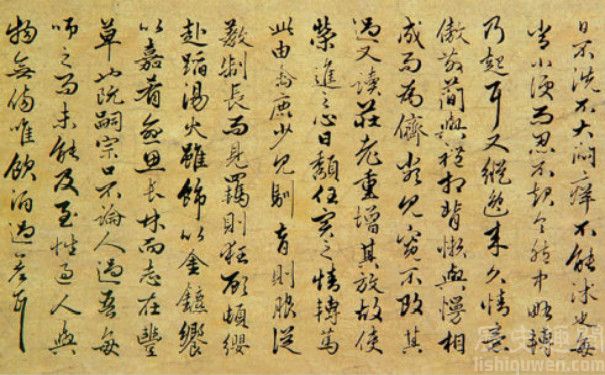 日不洗不大悶癢不能沐也每
常小便而忍不起令胞中略轉
乃起耳又縱逸来久情意
傲散簡與禮相背懶與慢相
成而為儕類見寬不攻其
過又讀莊老重增其放故使
榮進之心日頹任實之情轉篤
此由禽鹿少見馴育則服從
教制長而見羈則狂顧頓纓
赴蹈湯火雖飾以金鑣饗
以嘉肴愈思長林而志在豐
草也阮嗣宗口不論人過吾每
師之而未能及至性過人與
物無傷唯飲酒過差耳
历史趣闻
lishiquwen.com